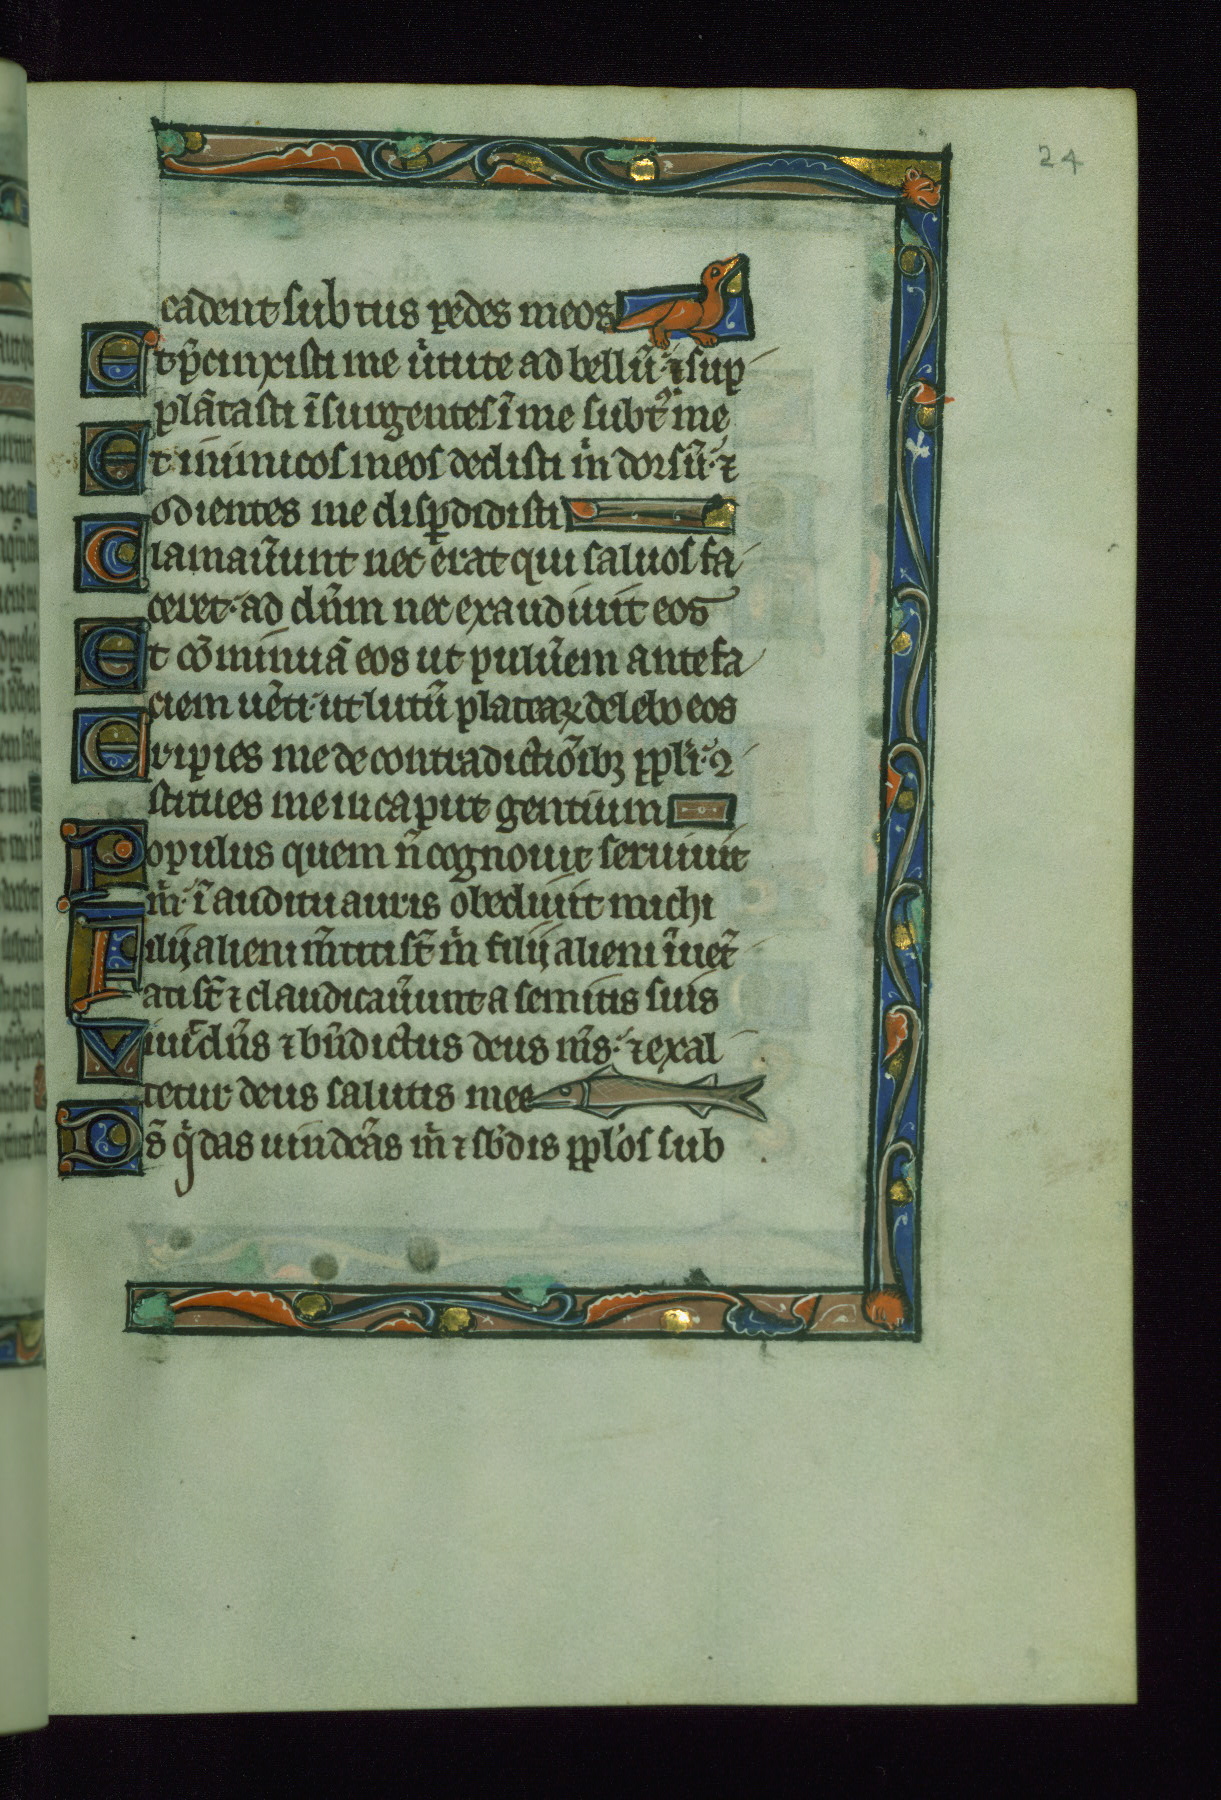 24
cadent subtus pedes meos
Et p̄cinxisti me ũtute ad bellũ· ⁊ sup
plãtasti ĩsurgentes ĩ me subt᷑ me
Et inimicos meos dedisti m̊ dorsũ· ⁊
odientes me disꝑdidisti
Clamaũunt nec erat qui saluos fa
ceret· ad dñm nec exaudiuit eos
Et cõminuã eos ut puluẽem ante fa
ciem uẽti· ut lutũ plateaꝝ delebo eos
Eripies me de contradictiõibꝫ ppl̃i· ꝯ
stitues me in caput gentium
Populus quem ñ cognouit seruiuit
m̊· ĩ auditu auris obediuit michi
Filij alieni m̃titi st̃ m̊ filij alieni ĩuet̃
ati st̃ ⁊ claudicaũunt a semitis suis
Viuit dñs ⁊ bñdictus deus mũs· ⁊ exal
tetur deus salutis mee
Ds̃ q̊ das uindc̃as m̊ ⁊ sbdis ppl̃os sub